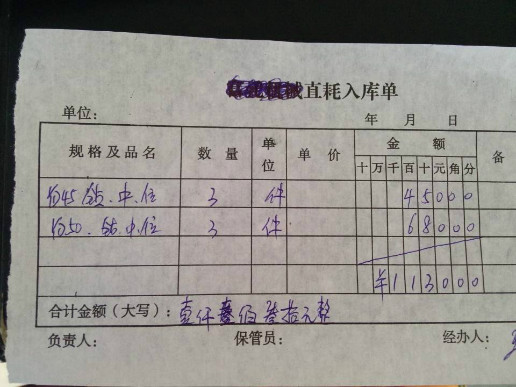 直耗入库单
单位: 年 月 日
规格及品名 数量 单位 单价 金额 备
十万千百十元角分
内45 钻.中.位 3 件 45000
内50. 钻.中.位 3 件 68000
¥113000
合计金额(大写): 壹仟壹佰叁拾元整
负责人: 保管员: 经办人: